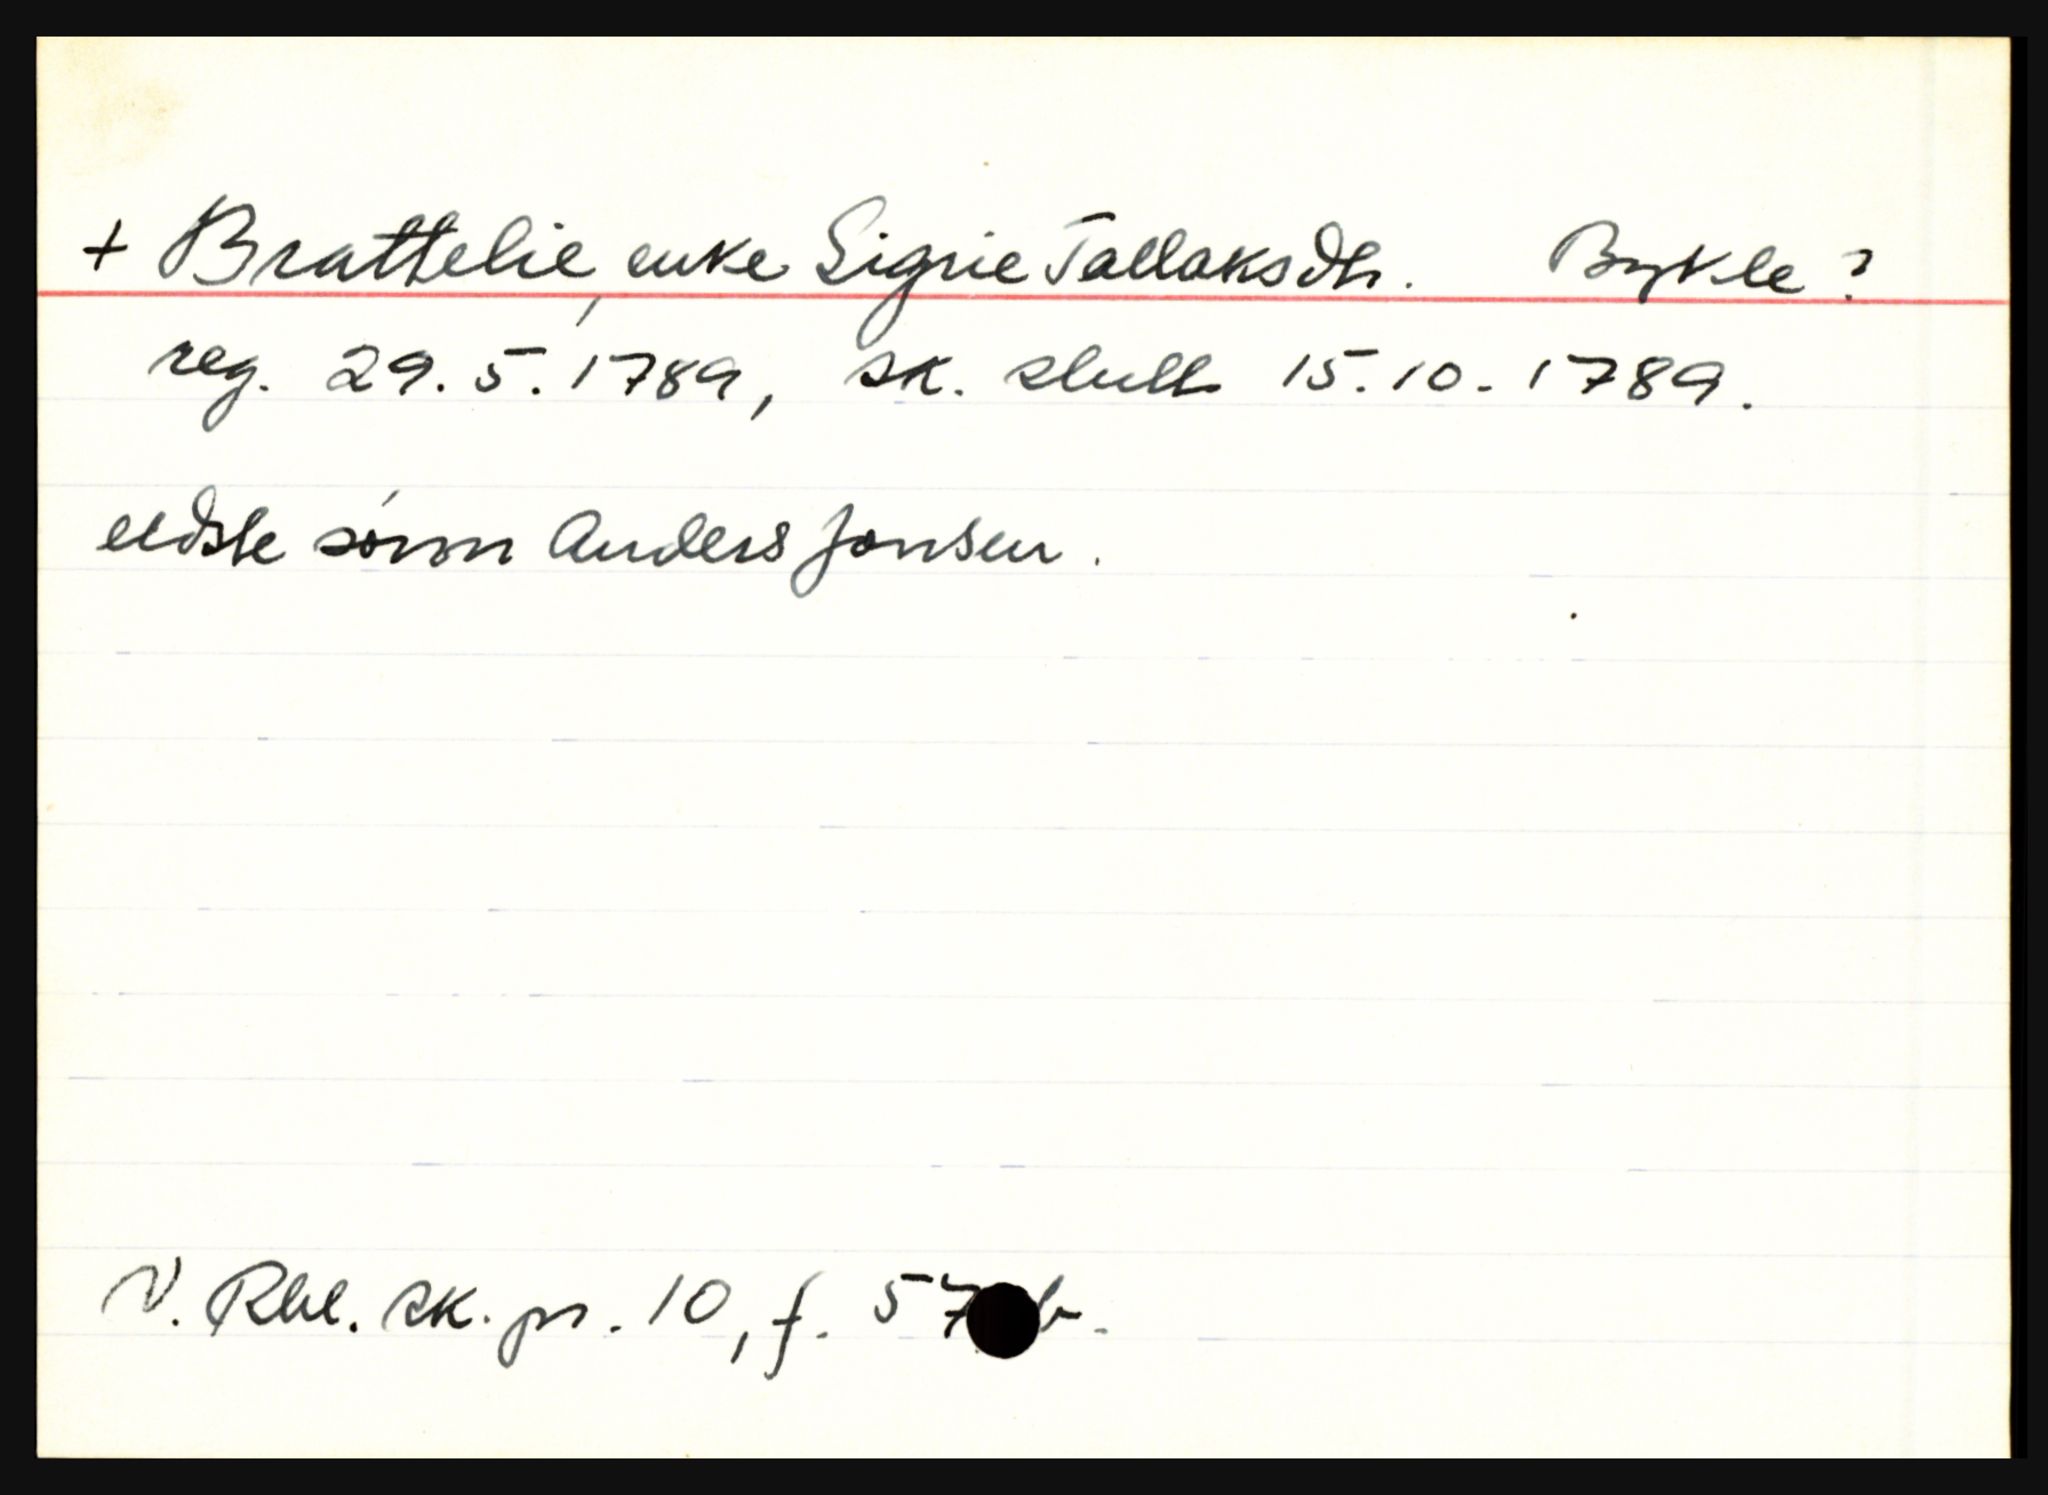 + Brattelie, enke Signe Tallaksdtr. Bykle?
reg. 29.5.1789, sk. slutt 15.10.1789.
eldste sønn Anders Jonsen.
N. Rbl. sk. pr. 10, f. 57 b.